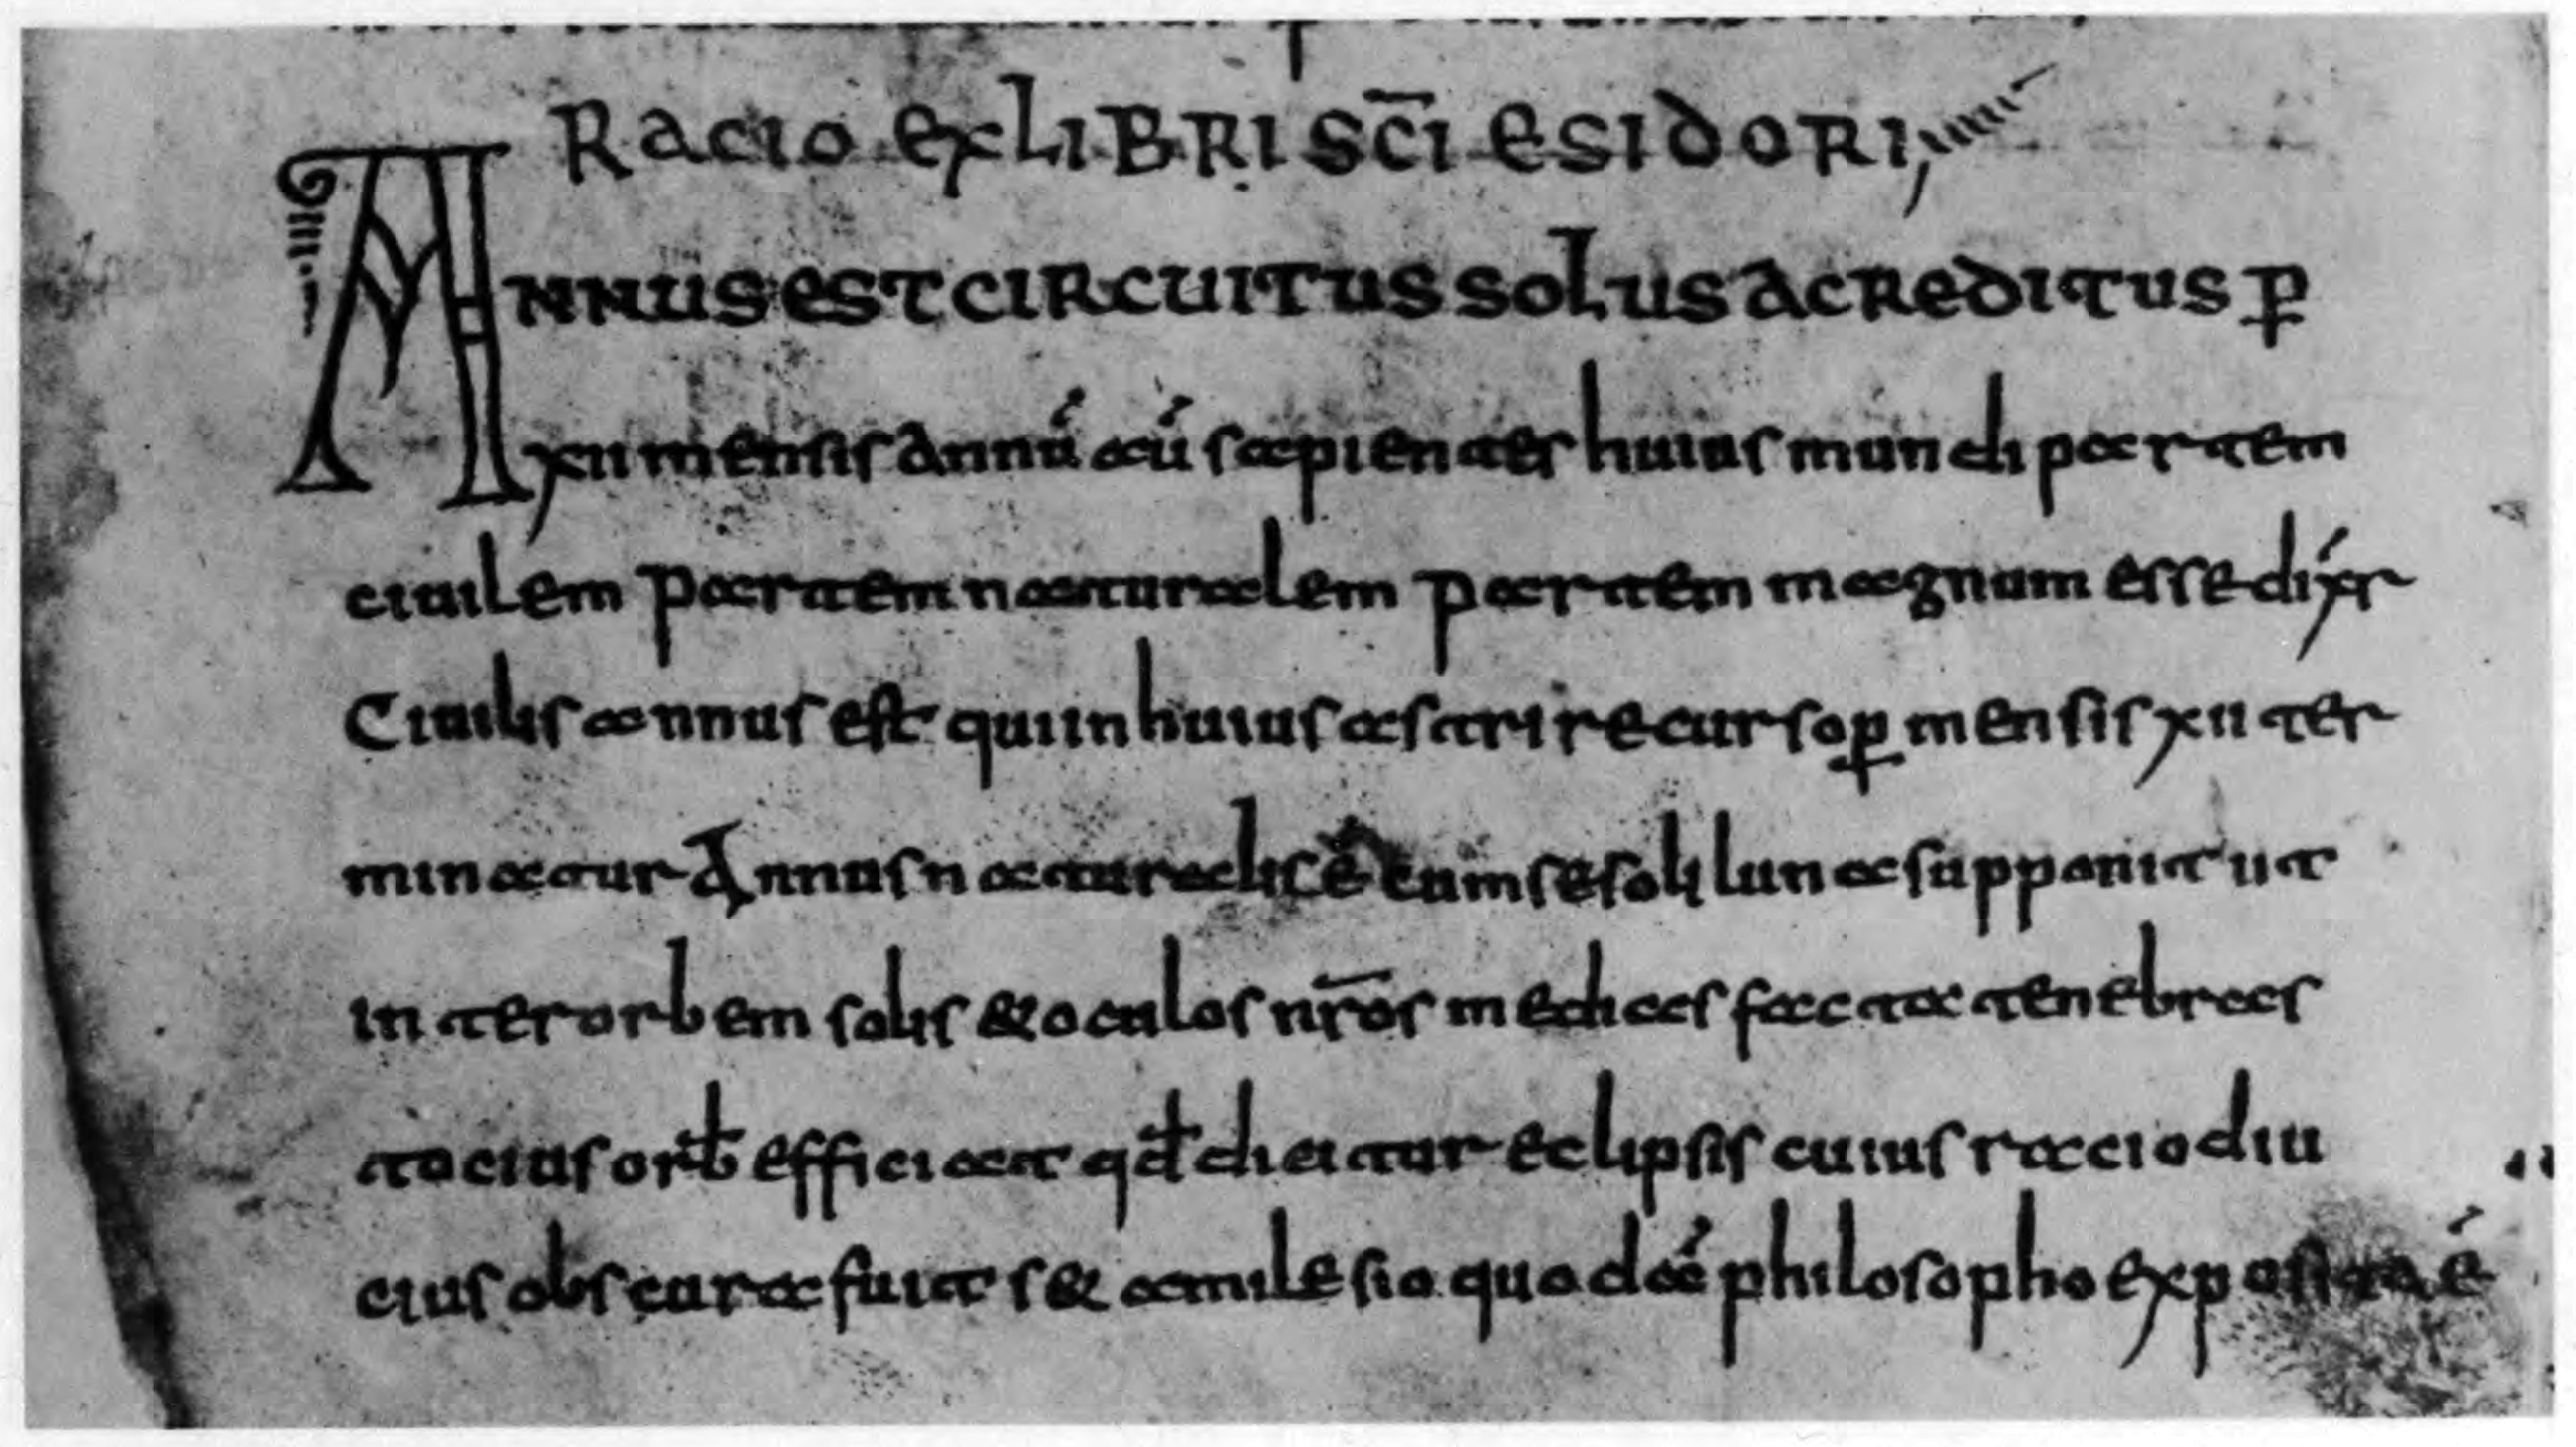 Racio ex libri sc̄i esidori
Annus est circuitus solus acreditus ꝑ
xii mensis annú aú sapientes huius mundi partem
ciuilem partem naturalem partem magnum esse díxr
Ciuilis annus est qui in huius astri recurso ꝑ mensis xii ter
minatur Annus naturalis ē cum se soli luna supponit ut
inter orbem solis & oculos nr̄os medias facta tenebras
tocius orƀ efficiat qđ dicitur eclipsis cuius racio diu
cius obscura fuit s& amilesio quodá philosopho exposita é